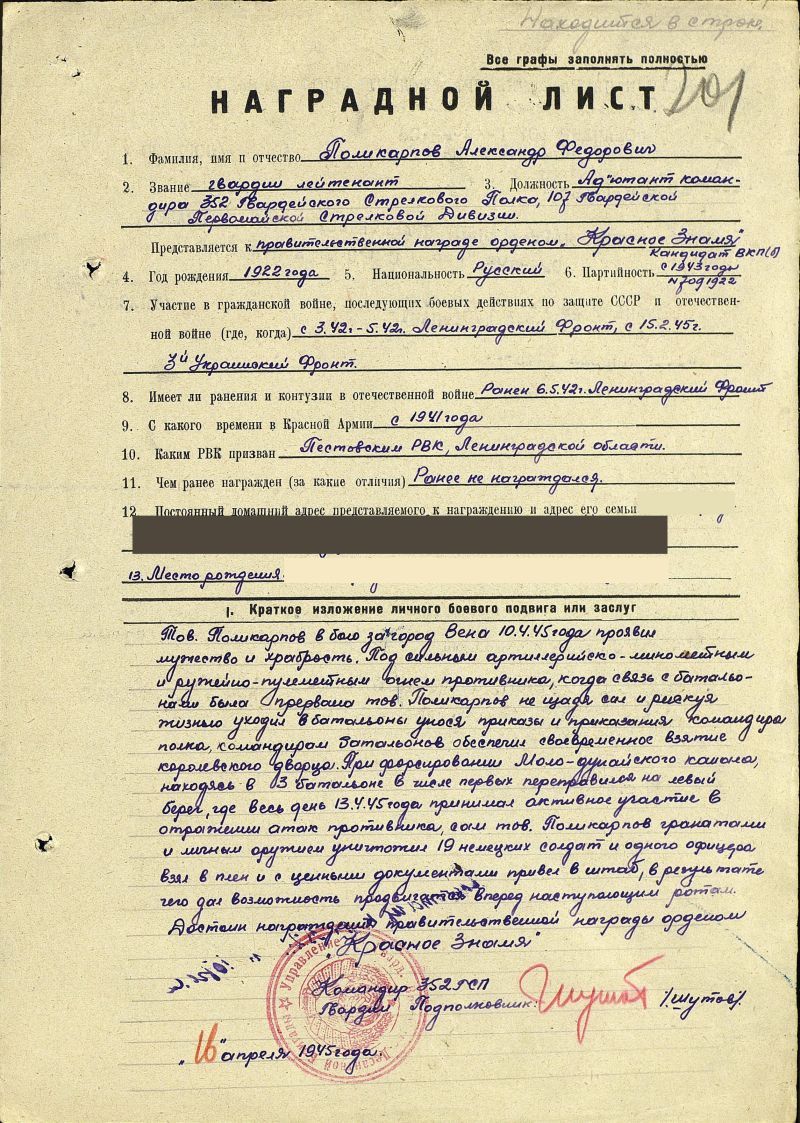 Находится в
Все графы заполнять полностью
НАГРАДНОЙ ЛИСТ
201
1. Фамилия, имя и отчество Поликарпов Александр Федорович
2. Звание гвардии лейтенант 3. Должность Ад"ютант коман-
дира 352 Гвардейского Стрелкового Полка, 107 Гвардейской
Первомайской Стрелковой Дивизии.
Представляется к правительственной награде орденом „Красное Знамя"
Кандидат ВКП(б)
4. Год рождения 1922 года 5. Национальность Русский 6. Партийность с 1943 года
7. Участие в гражданской войне, последующих боевых действиях по защите СССР и отечествен-
ной войне (где, когда) с 3.42г - 5.42г. Ленинградский Фронт, с 15.2.45г.
3й Украинский Фронт.
8. Имеет ли ранения и контузии в отечественной войне Ранен 6.5.42г. Ленинградский Фронт
9. С какого времени в Красной Армии с 1941 года
10. Каким РВК призван Пестовским РВК, Ленинградской области.
11. Чем ранее награжден (за какие отличия) Ранее не награждался.
12. Постоянный домашний адрес представляемого к награждению и адрес его семьи
13. Место рождения.
I. Краткое изложение личного боевого подвига или заслуг
Тов. Поликарпов в бою за город Вена 10.4.45 года проявил
мужество и храбрость. Под сильным артиллерийско-минометным
и ружейно-пулеметным огнем противника, когда связь с батальо-
нами была прервана тов. Поликарпов не щадя сил и рискуя
жизнью уходил в батальоны унося приказы и приказания командира
полка, командирам батальонов обеспечил своевременное взятие
королевского дворца. При форсировании Моло-дунайского канала,
находясь в 3 батальоне в числе первых переправился на левый
берег, где весь день 13.4.45 года принимал активное участие в
отражении атак противника, сам тов. Поликарпов гранатами
и личным оружием уничтожил 19 немецких солдат и одного офицера
взял в плен и с ценными документами привел в штаб, в результате
чего дал возможность продвигатся вперед наступающим ротам.
Достоин награждения правительственной награды орденом
„Красное Знамя"
Управление
Командир 352 ГСП
Гвардии Подполковник: Шутов /Шутов/.
„16" апреля 1945 года.